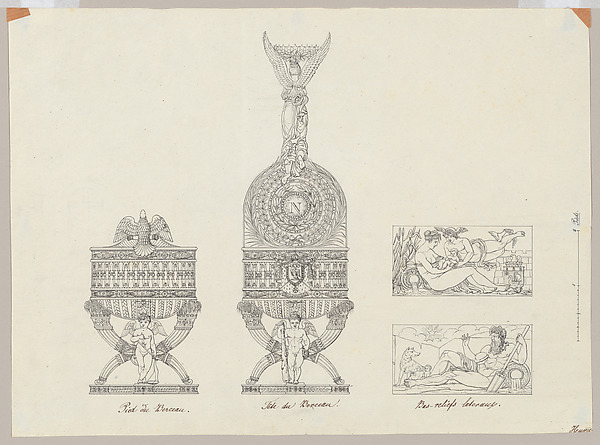 N
Pied du Berceau.
Tête du Berceau.
Bas-reliefs lateraux.